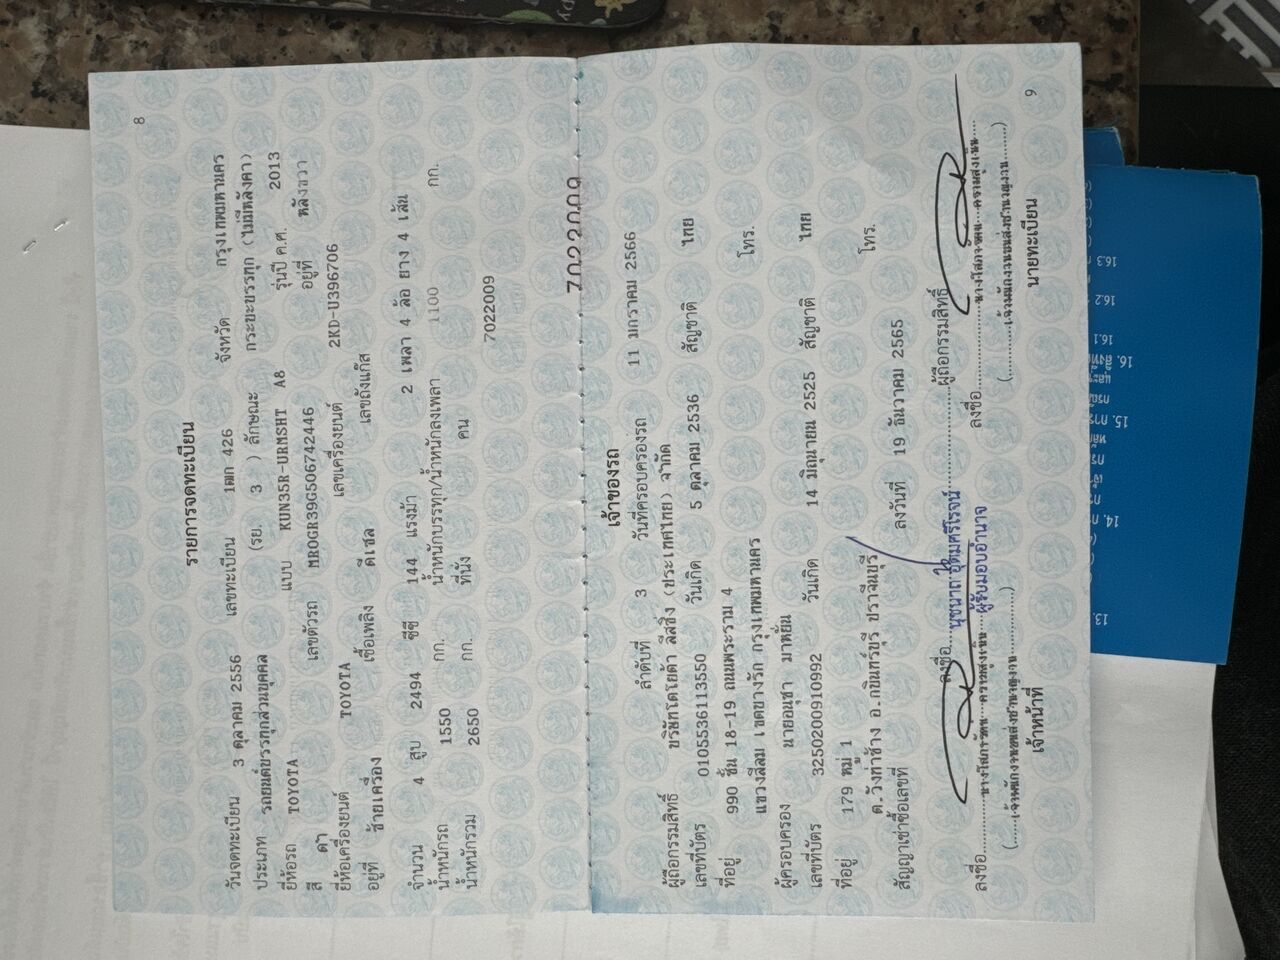 8
รายการจดทะเบียน
วันจดทะเบียน 3 ตุลาคม 2556 เลขทะเบียน 1ฒก 426 จังหวัด กรุงเทพมหานคร
ประเภท รถยนต์บรรทุกส่วนบุคคล (รย. 3 ) ลักษณะ กระบะบรรทุก (ไม่มีหลังคา)
ยี่ห้อรถ TOYOTA แบบ KUN35R-URMSHT A8 รุ่นปี ค.ศ. 2013
สี ดำ เลขตัวรถ MR0GR39G506742446 อยู่ที่ หลังขวา
ยี่ห้อเครื่องยนต์ TOYOTA เลขเครื่องยนต์ 2KD-U396706
อยู่ที่ ซ้ายเครื่อง เชื้อเพลิง ดีเซล เลขถังแก๊ส
จำนวน 4 สูบ 2494 ซีซี 144 แรงม้า 2 เพลา 4 ล้อ ยาง 4 เส้น
น้ำหนักรถ 1550 กก. น้ำหนักบรรทุก/น้ำหนักลงเพลา 1100 กก.
น้ำหนักรวม 2650 กก. ที่นั่ง คน
7022009
7022009
เจ้าของรถ
ลำดับที่ 3 วันที่ครอบครองรถ 11 มกราคม 2566
ผู้ถือกรรมสิทธิ์ บริษัทโตโยต้า ลีสซิ่ง (ประเทศไทย) จำกัด
เลขที่บัตร 0105536113550 วันเกิด 5 ตุลาคม 2536 สัญชาติ ไทย
ที่อยู่ 990 ชั้น 18-19 ถนนพระราม 4 โทร.
แขวงสีลม เขตบางรัก กรุงเทพมหานคร
ผู้ครอบครอง นายอนุชา มาหยัน
เลขที่บัตร 3250200910992 วันเกิด 14 มิถุนายน 2525 สัญชาติ ไทย
ที่อยู่ 179 หมู่ 1 โทร.
ต.วังท่าช้าง อ.กบินทร์บุรี ปราจีนบุรี
สัญญาเช่าซื้อเลขที่ ลงวันที่ 19 ธันวาคม 2565
ลงชื่อ นุชนาถ อุดมศรีโรจน์ ผู้ถือกรรมสิทธิ์
ผู้รับมอบอำนาจ
ลงชื่อ ลงชื่อ
เจ้าหน้าที่ นายทะเบียน
9
13.
14.
15.
16.
16.1
16.2
16.3